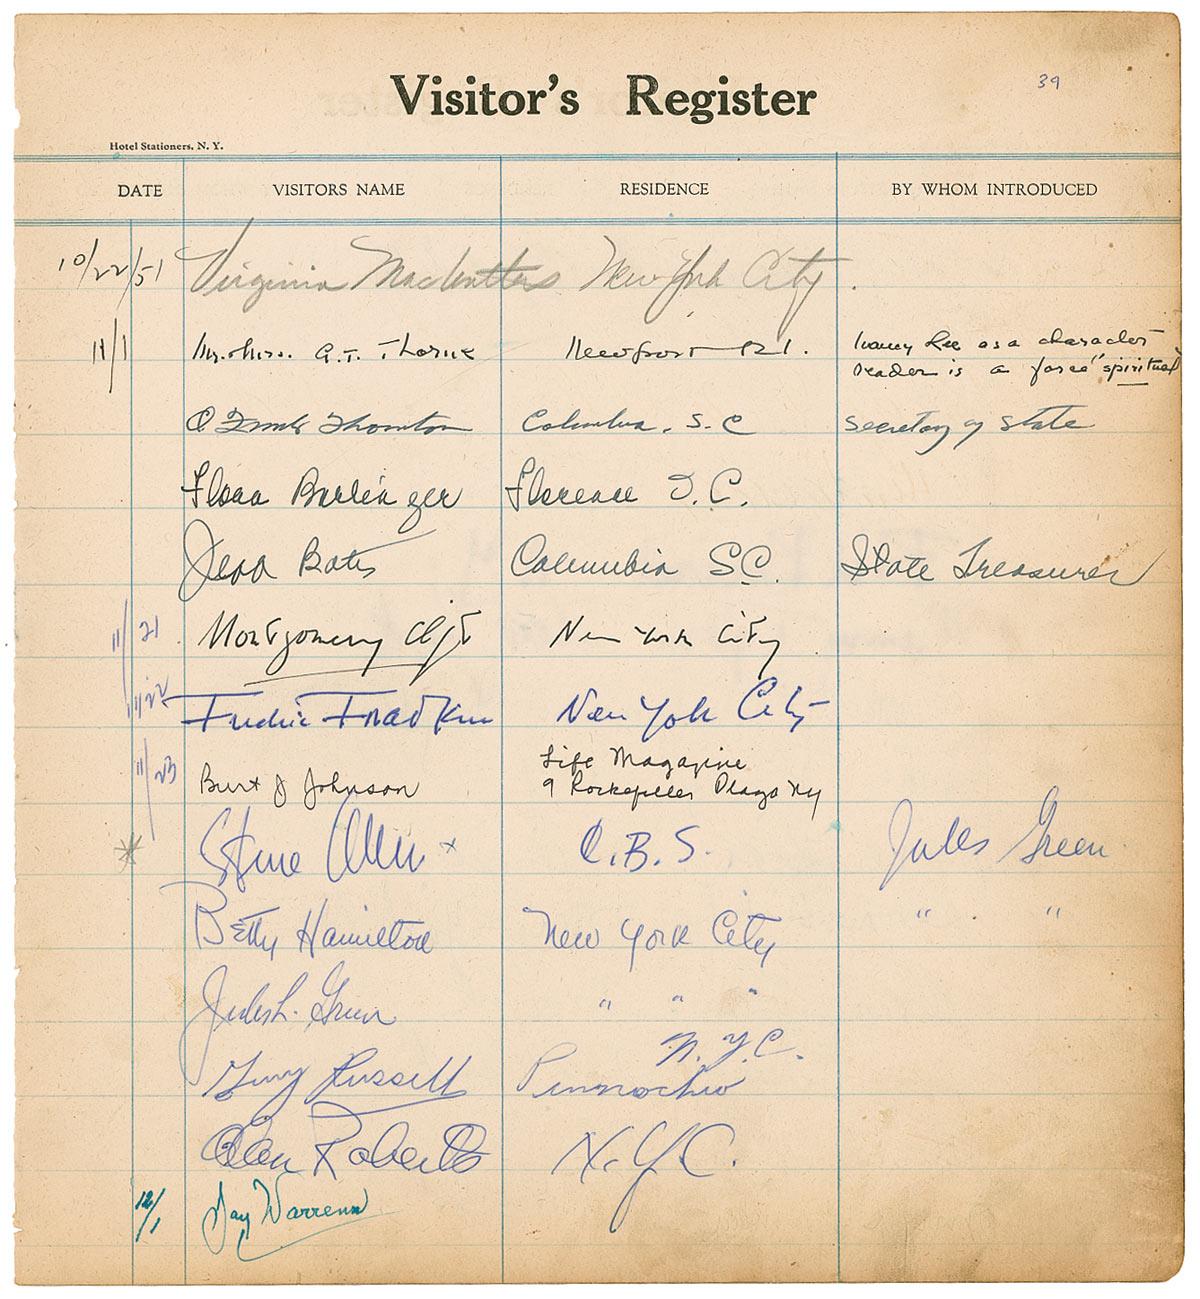 39
Visitor's Register
Hotel Stationers, N. Y.
DATE VISITORS NAME RESIDENCE BY WHOM INTRODUCED
10/22/51 Virginia New York City.
11/1 Mr. & Mrs. G.T. Thorne Newport R.I. Nancy Lee as a character
reader is a force "spiritual
O Frank Thornton Columbia, S.C secretary of state
Florence S.C.
Jeff Bates Columbia SC. State Treasurer
11/21 Montgomery Clift New York City
11/22 Fredric Fradkin New York City
11/23 Burt J Johnson Life Magazine
9 Rockefeller Plaza NY
* Steve Allen x C.B.S. Jules Green
Betty Hamilton New York City " "
Jules L. Green " " "
N.Y.C.
Russell Pinnochio
Alan Roberts N.Y.C.
12/1 Warrenn